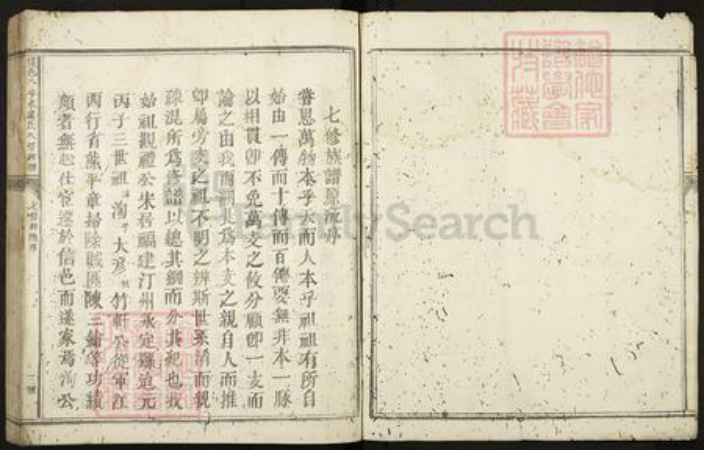 七修族譜源流序
嘗思萬物本乎天而人本乎祖祖有所自
始由一傳而十傳而百傳要無非本一脉
以相貫卽不免萬支之攸分顧卽一支而
論之由我而溯其爲本支之親自人而推
卽屬旁支之祖不明之辨斯世系淆而親
疎混所爲修譜以總其綱而分其紀也我
始祖觀禮公宋居福建汀州永定縣迨元
丙子三世祖 洵 大彥 竹軒公從軍江
西行省 平章掃除賊匪陳三鎗等功績
頗者無心仕宦遂於信邑而遂家焉洵公
七修源流序
FamilySearch
道德家譜學會
珍藏